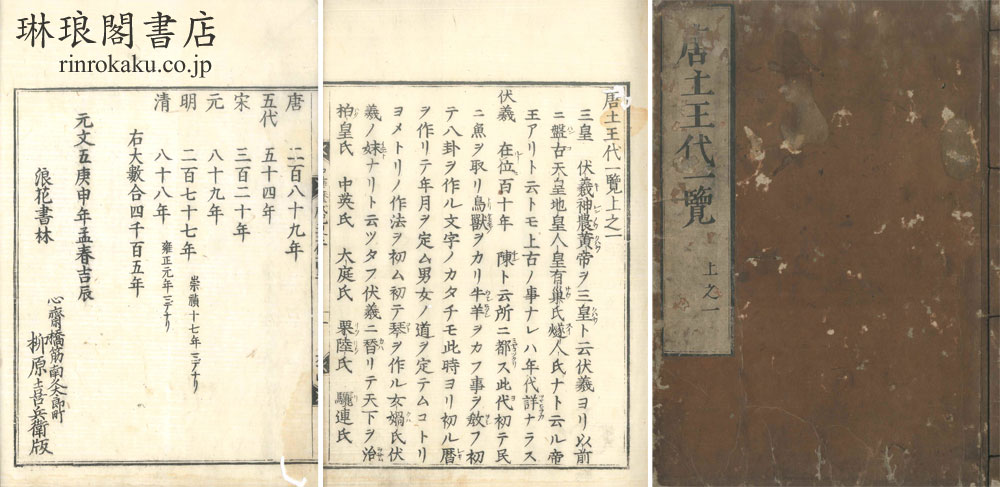 琳琅閣書店
rinrokaku.co.jp
唐土王代一覧
上之一
唐土王代一覧上之一
三皇 伏羲神農黄帝ヲ三皇ト云伏羲ヨリ以前
ニ盤古天皇地皇人皇有巣氏燧人氏ナト云ル帝
王アリト云トモ上古ノ事ナレハ年代詳ナラス
伏羲 在位百十年 陳ト云所ニ都ス此代初テ民
ニ魚ヲ取リ鳥獣ヲカリ牛羊ヲカフ事ヲ敎フ初
テ八卦ヲ作ル文字ノカタチモ此時ヨリ初ル暦
ヲ作リテ年月ヲ定ム男女ノ道ヲ定テムコトリ
ヨメトリノ作法ヲ初ム初テ琴ヲ作ル女媧氏伏
羲ノ妹ナリト云ツタフ伏羲ニ替リテ天下ヲ治
柏皇氏 中英氏 大庭氏 栗陸氏 驪連氏
唐 二百八十九年
五代 五十四年
宋 三百二十年
元 八十九年
明 二百七十七年 崇禎十七年ミデナリ
清 八十八年 雍正元年ミデナリ
右大數合四千百五年
元文五庚申年孟春吉辰
浪花書林
心齋橋筋南久太郎町
柳原喜兵衛版